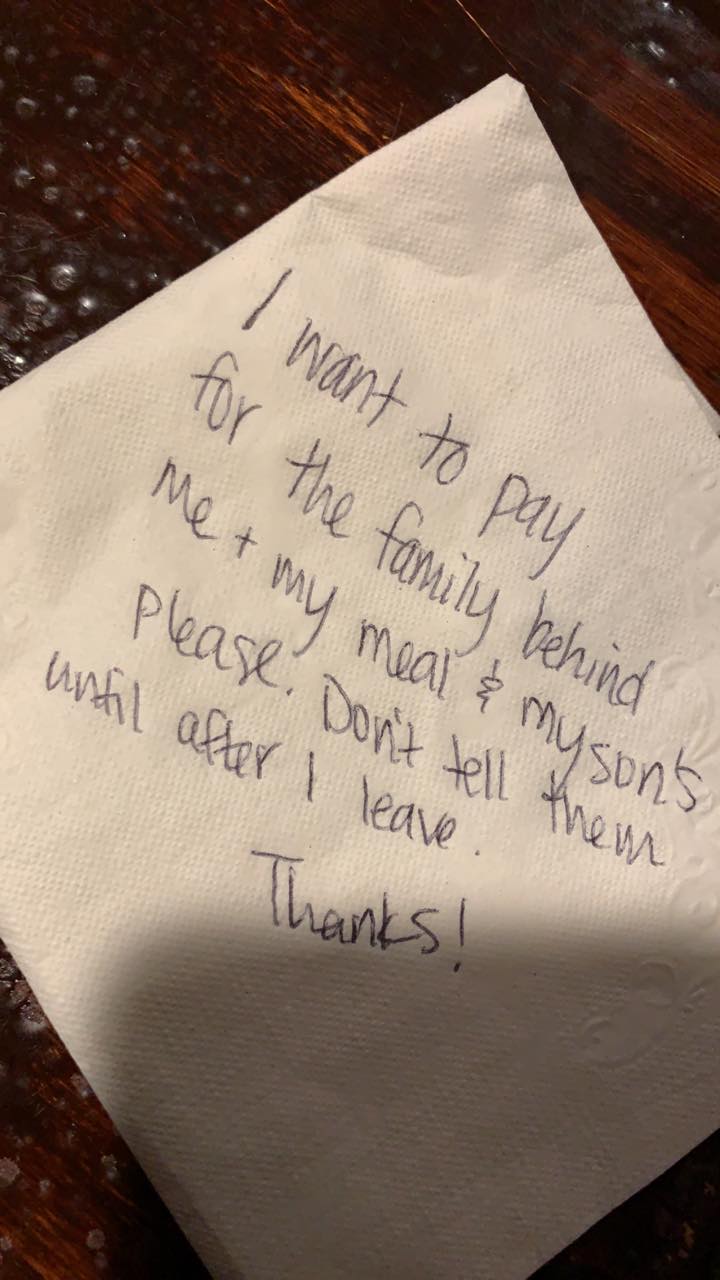 I want to pay
for the family behind
me + my meal & my son's
please. Don't tell them
until after I leave.
Thanks!